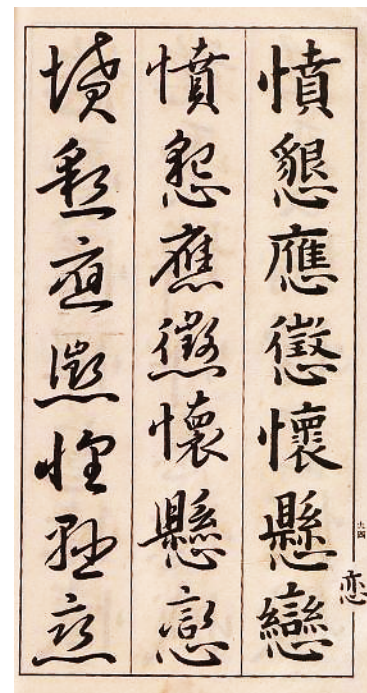 憤懇應懲懷懸戀
憤懇應懲懷懸戀
憤懇應懲懷懸戀
六四
恋